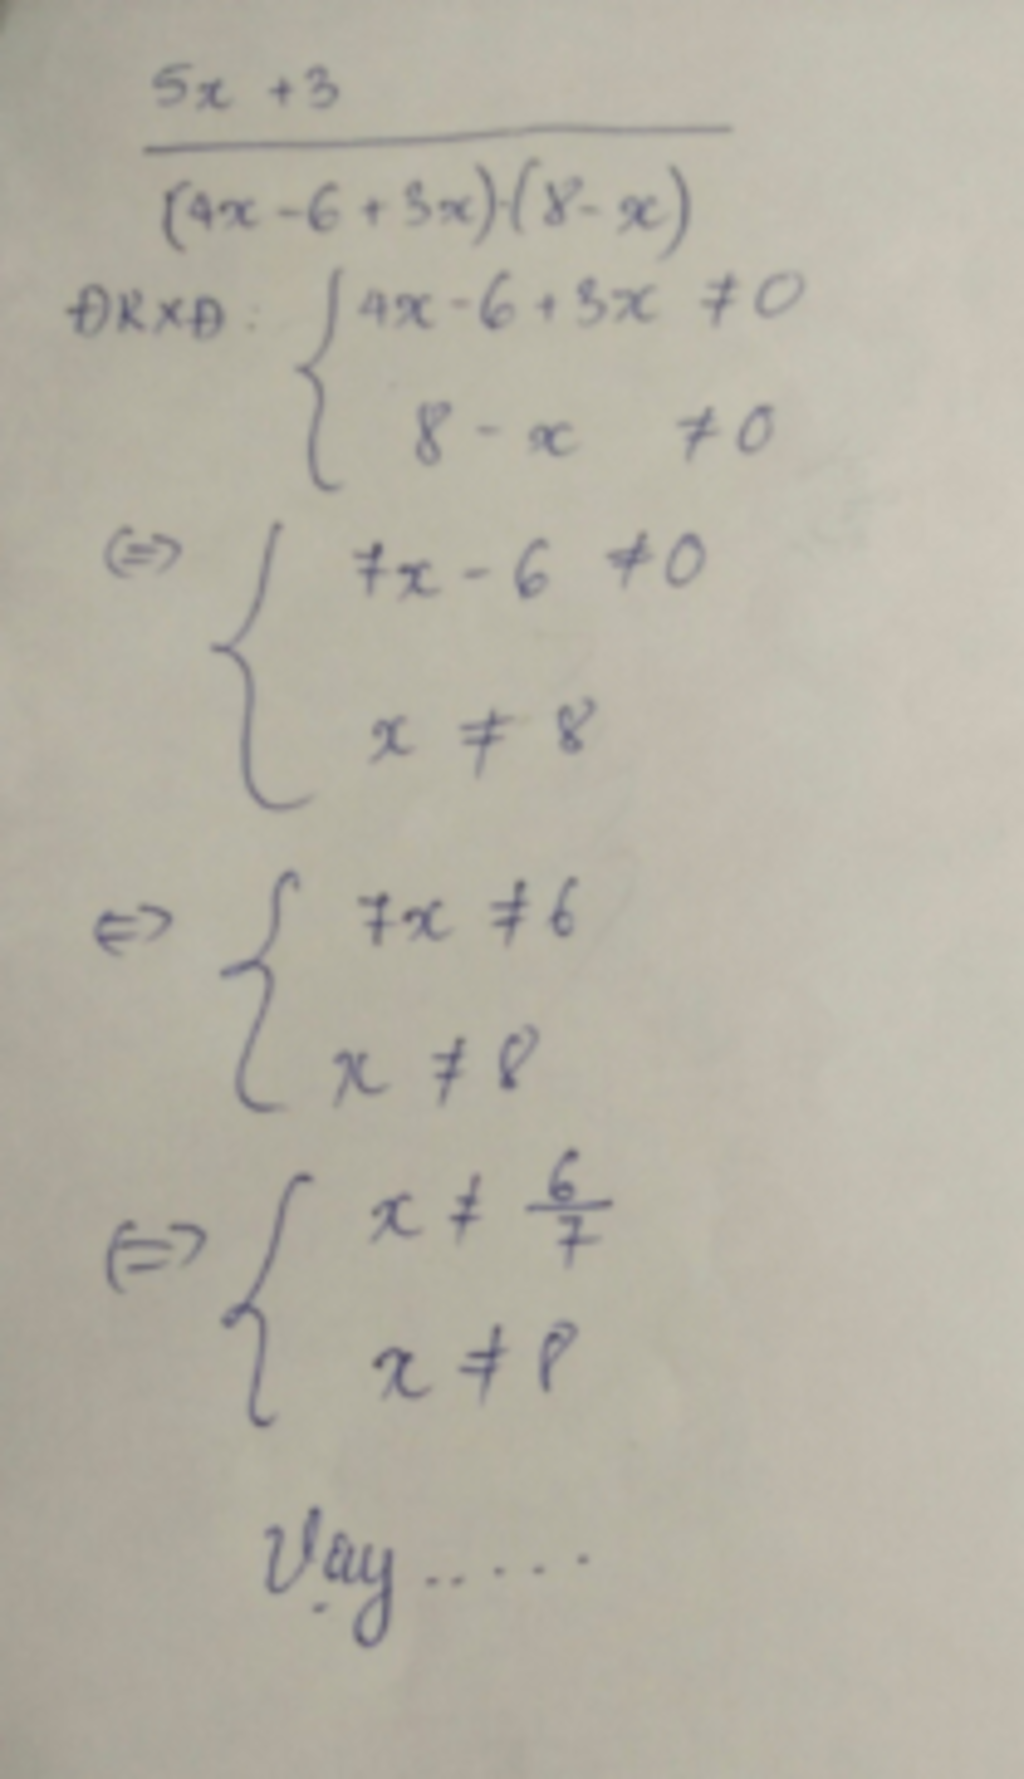 5x + 3
(4x - 6 + 3x)·(8 - x)
ĐKXĐ: { 4x - 6 + 3x ≠ 0
8 - x ≠ 0
(=> { 7x - 6 ≠ 0
x ≠ 8
<=> { 7x ≠ 6
x ≠ 8
(=> { x ≠ 6/7
x ≠ 8
Vậy .....